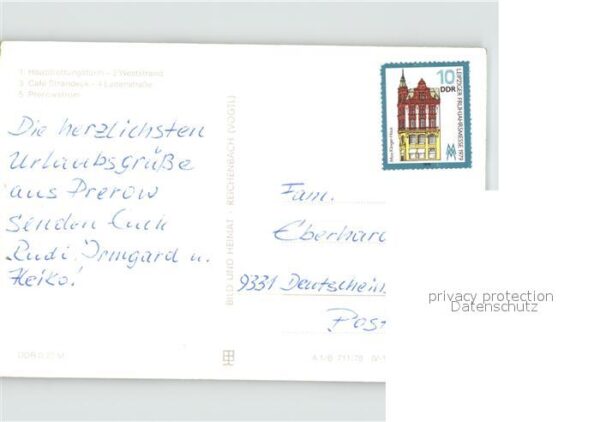 1 Hauptrettungsturm – 2 Weststrand
3 Café Strandeck – 4 Lesterstraße
5 Prerowstrom
Die herzlichsten
Urlaubsgrüße
aus Prerow
senden Euch
Rudi, Irmgard u.
Heiko!
DDR 0,20 M
BILD UND HEIMAT · REICHENBACH (VOGTL)
10
DDR
LEIPZIGER FRÜHJAHRSMESSE 1979
MM
Fam.
Eberhar
9331 Deutschein
Pos
privacy protection
Datenschutz